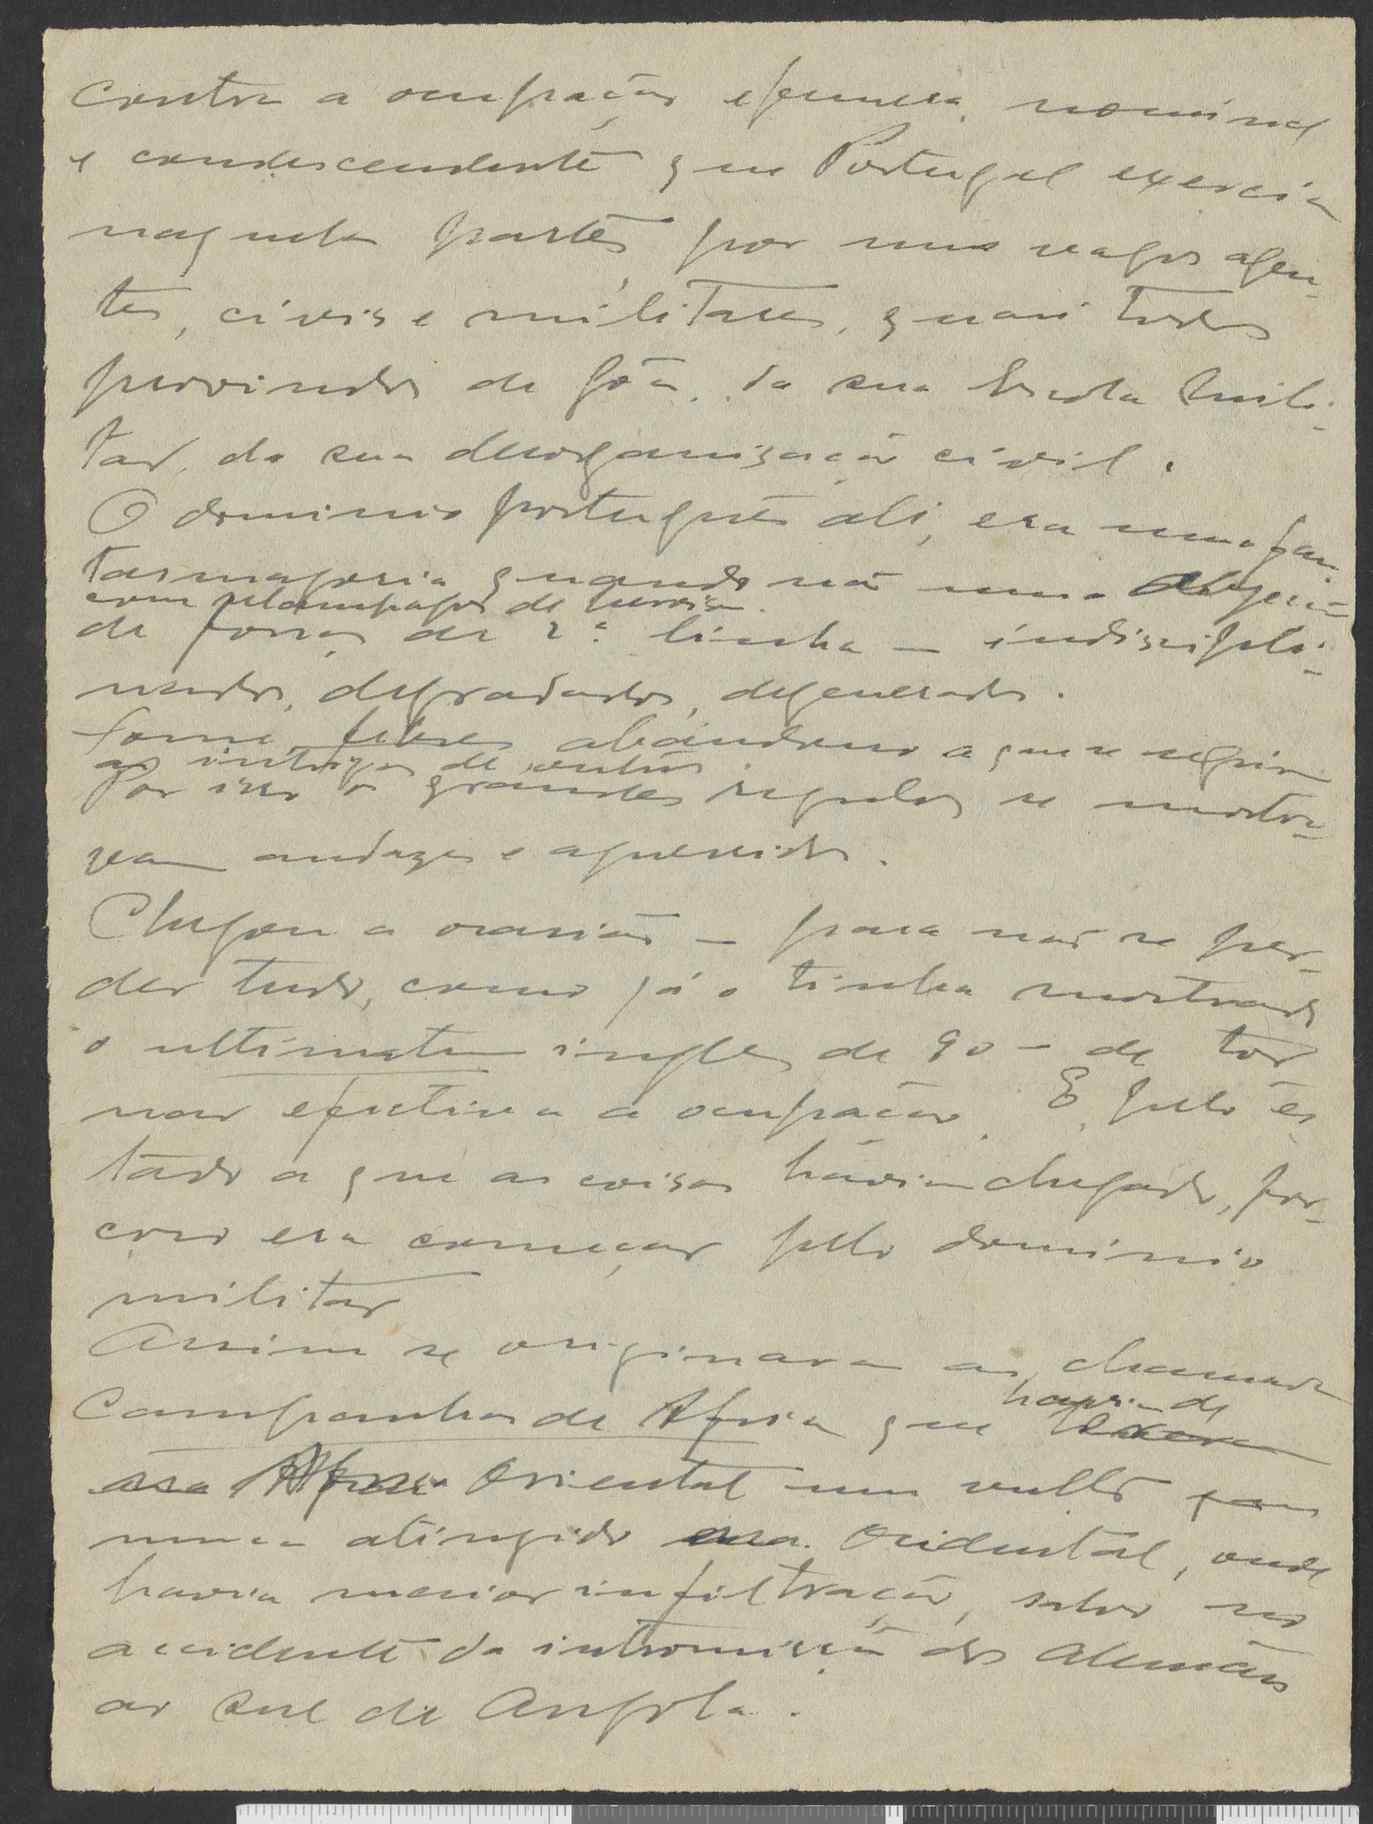 contra a ocupação efemera, nominal
e condescendente que Portugal exercia
naquelas partes, por uns vagos agen-
tes, civis e militares, quasi todos
provindos de Gôa, da sua Escola Mili-
tar, da sua desorganisação civil.
O dominio português ali, era uma fan-
tasmagoria quando não uma
com relampagos de heroismo.
de forças de 2ª linha — indiscipli-
nados, degradados, degenerados.
fome, febres, abandono a que se seguiam
as intrigas de
Por isso os grandes regulos se mostra-
vam audazes e aguerridos.
Chegou a ocasião — para não se per-
der tudo, como já o tinha mostrado
o ultimatum inglês de 90 — de tor
nar efectiva a ocupação. E, pelo es-
tado a que as coisas haviam chegado, for-
çoso era começar pelo dominio
militar
Assim se originaram as chamadas
Campanhas de Africa que haviam de
na Africa Oriental um vulto
nunca atingido na Ocidental, onde
havia maior infiltração, salvo no
accidente da intromissão dos Alemães
ao sul de Angola.